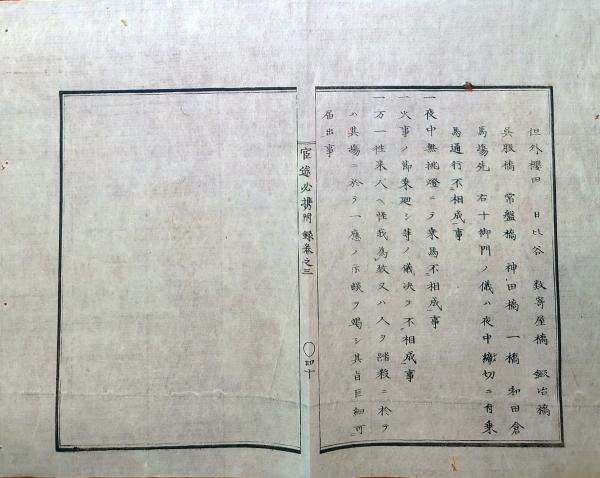 但外櫻田 日比谷 数寄屋橋 鍛冶橋
呉服橋 常盤橋 神田橋 一橋 和田倉
馬場先 右十御門ノ儀ハ夜中締切ニ有乗
馬通行不相成事
一夜中無挑燈ニヲ乗馬不相成事
一火事ノ節乗廻シ等ノ儀決ヲ不相成事
一万一性来人ヘ怪我為致又ハ人ヲ踏殺ニ於ヲ
ハ其場ニ於ヲ一應ノ示談ヲ竭シ其旨巨細可
届出事
官途必携附録巻之三
〇四十